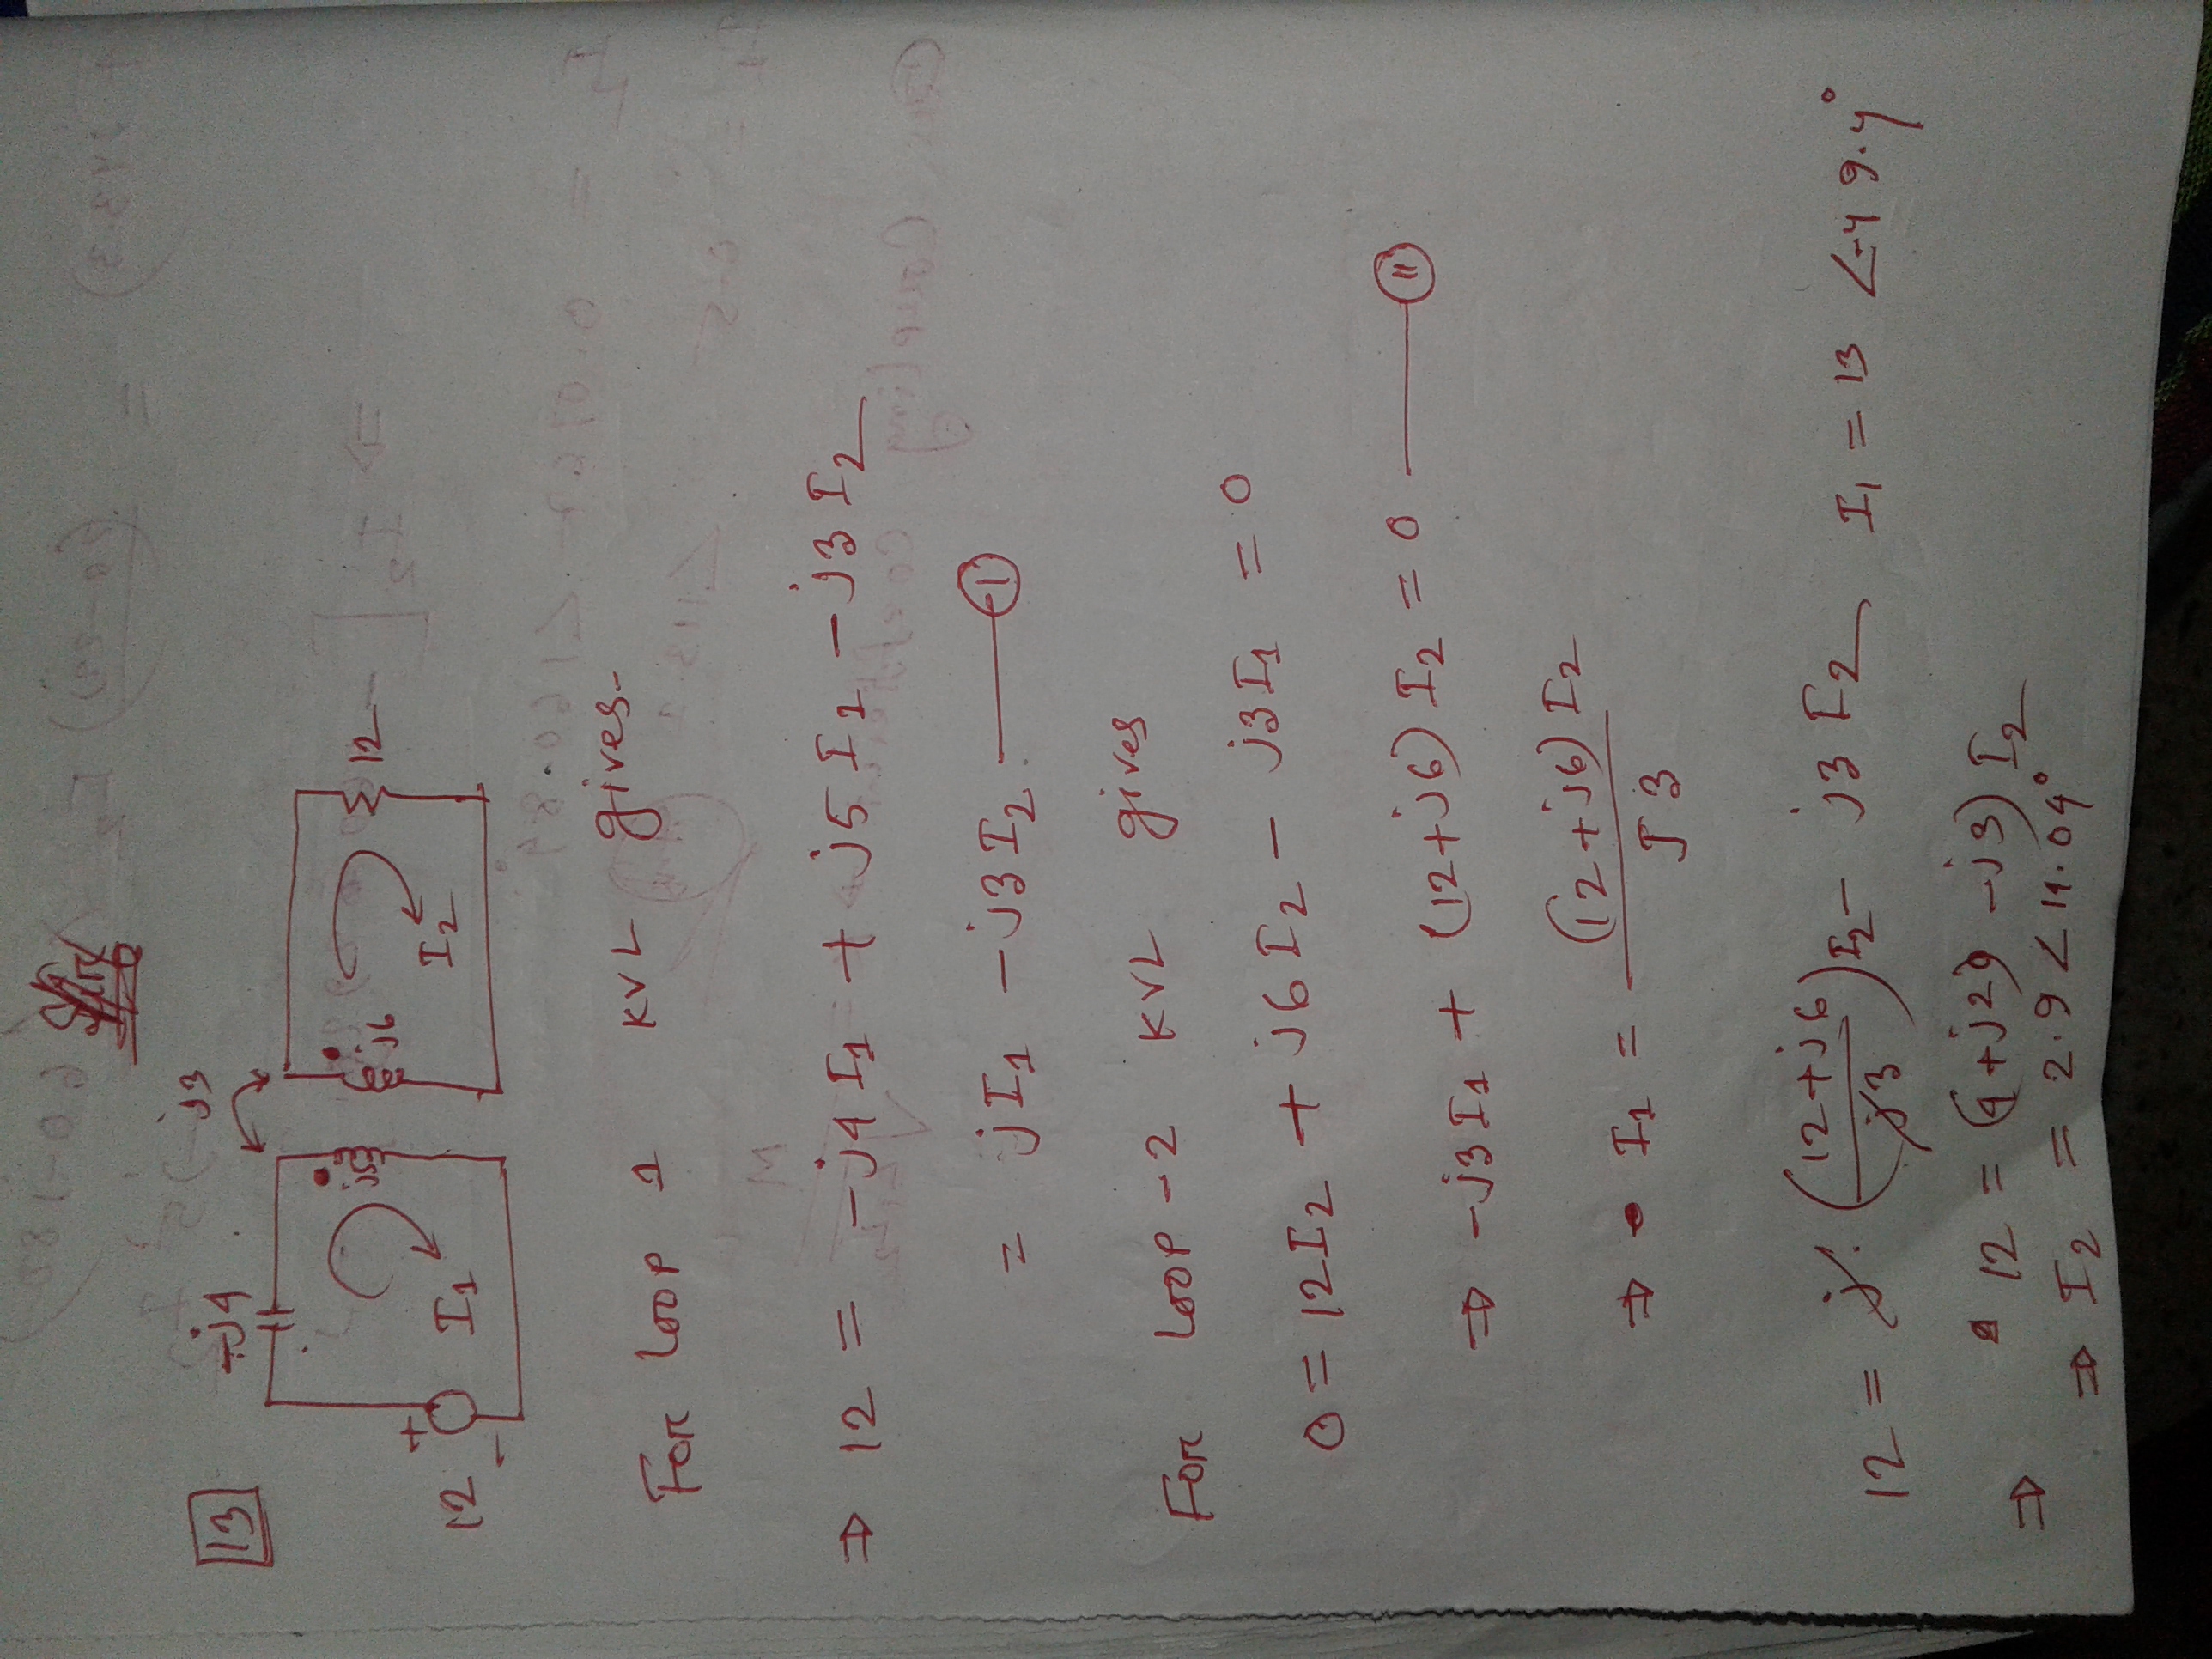 13
-j4
j3
j5
j6
12
+
12
-
I1
I2
For loop 1 KVL gives-
⇒ 12 = -j4 I1 + j5 I1 - j3 I2
= jI1 - j3 I2 —— (I)
For loop-2 KVL gives
0 = 12I2 + j6 I2 - j3 I1 = 0
⇒ -j3 I1 + (12+j6) I2 = 0 —— (II)
⇒ I1 = (12+j6) I2 / j3
12 = j. (12+j6 / j3) I2 - j3 I2
I1 = 13 ∠-49.4°
⇒ 12 = (4+j2 -j3) I2
⇒ I2 = 2.9 ∠14.04°